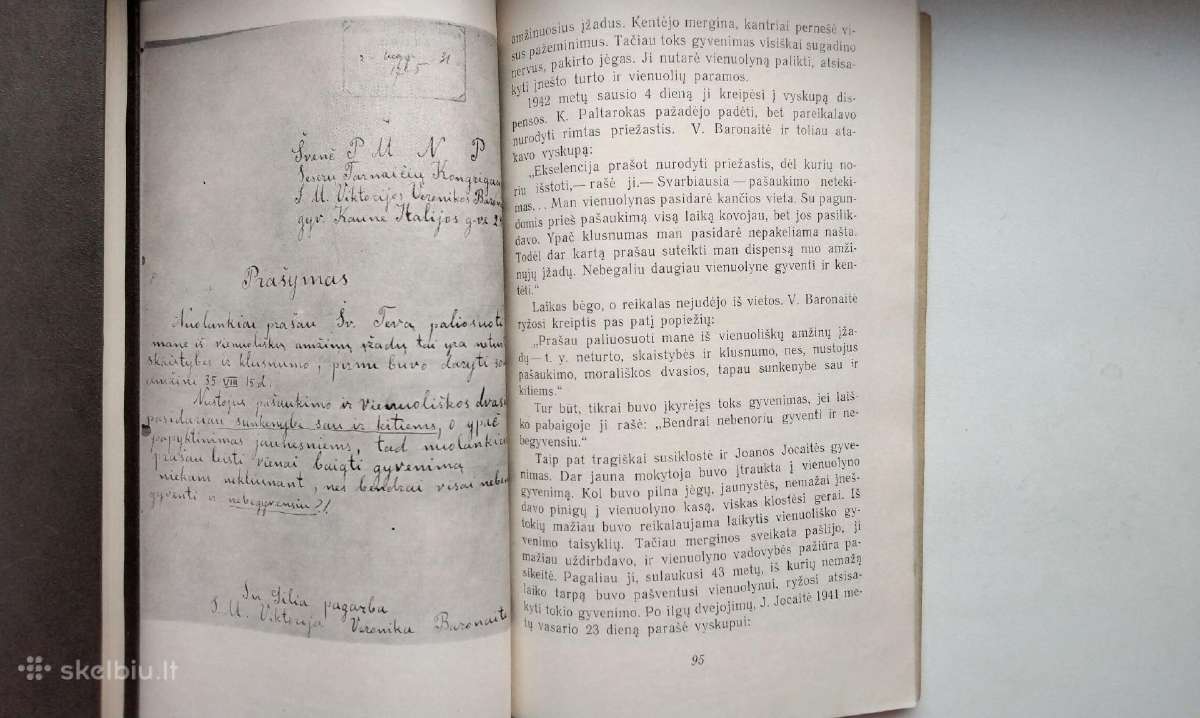 Švenč P M N P
Seserų Tarnaičių Kongregac
S. M. Viktorijos Veronikos Baron
gyv. Kaune Italijos g-ve 29
Prašymas
Nuolankiai prašau Šv. Tėvą paliosuoti
mane iš vienuoliškų amžinų įžadų tai yra netur
skaistybės ir klusnumo, pirmi buvo daryti
amžini 35 VIII 15 d.
Nustojus pašaukimo ir vienuoliškos dvasi
pasidariau sunkenybė sau ir kitiems, o ypč
papyktinimas jaunesniems, tad nuolankiai
prašau leisti vienai baigti gyvenimą
niekam nekliunant, nes bendrai visai neben
gyventi ir nebegyvensiu
Su gilia pagarba
S. M. Viktorija Veronika Baronaitė
amžinuosius įžadus. Kentėjo mergina, kantriai pernešė vi-
sus pažeminimus. Tačiau toks gyvenimas visiškai sugadino
nervus, pakirto jėgas. Ji nutarė vienuolyną palikti, atsisa-
kyti įnešto turto ir vienuolių paramos.
1942 metų sausio 4 dieną ji kreipėsi į vyskupą dis-
pensos. K. Paltarokas pažadėjo padėti, bet pareikalavo
nurodyti rimtas priežastis. V. Baronaitė ir toliau ata-
kavo vyskupą:
„Ekselencija prašot nurodyti priežastis, dėl kurių no-
riu išstoti,— rašė ji.— Svarbiausia — pašaukimo neteki-
mas... Man vienuolynas pasidarė kančios vieta. Su pagun-
domis prieš pašaukimą visą laiką kovojau, bet jos pasilik-
davo. Ypač klusnumas man pasidarė nepakeliama našta.
Todėl dar kartą prašau suteikti man dispensą nuo amži-
nųjų įžadų. Nebegaliu daugiau vienuolyne gyventi ir ken-
tėti.“
Laikas bėgo, o reikalas nejudėjo iš vietos. V. Baronaitė
ryžosi kreiptis pas patį popiežių:
„Prašau paliuosuoti mane iš vienuoliškų amžinų įža-
dų — t. y. neturto, skaistybės ir klusnumo, nes, nustojus
pašaukimo, morališkos dvasios, tapau sunkenybe sau ir
kitiems.“
Tur būt, tikrai buvo įkyrėjęs toks gyvenimas, jei laiš-
ko pabaigoje ji rašė: „Bendrai nebenoriu gyventi ir ne-
begyvensiu.“
Taip pat tragiškai susiklostė ir Joanos Jocaitės gyve-
nimas. Dar jauna mokytoja buvo įtraukta į vienuolyno
gyvenimą. Kol buvo pilna jėgų, jaunystės, nemažai įneš-
davo pinigų į vienuolyno kasą, viskas klostėsi gerai. Iš
tokių mažiau buvo reikalaujama laikytis vienuoliško gy-
venimo taisyklių. Tačiau merginos sveikata pašlijo, ji
mažiau uždirbdavo, ir vienuolyno vadovybės pažiūra pa-
sikeitė. Pagaliau ji, sulaukusi 43 metų, iš kurių nemažą
laiko tarpą buvo pašventusi vienuolynui, ryžosi atsisa-
kyti tokio gyvenimo. Po ilgų dvejojimų, J. Jocaitė 1941 me-
tų vasario 23 dieną parašė vyskupui:
95
skelbiu.lt